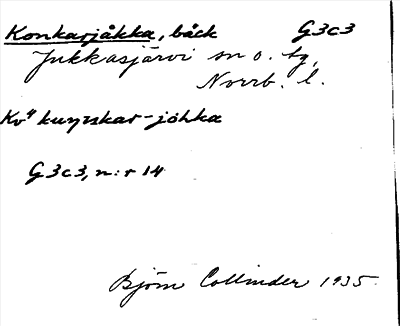 Konkasjåkka, bäck G3c3
Jukkasjärvi sn o. tg,
Norrb. l.
Kv" kuŋskas-johka
G3c3, n:r 14
Björn Collinder 1935.